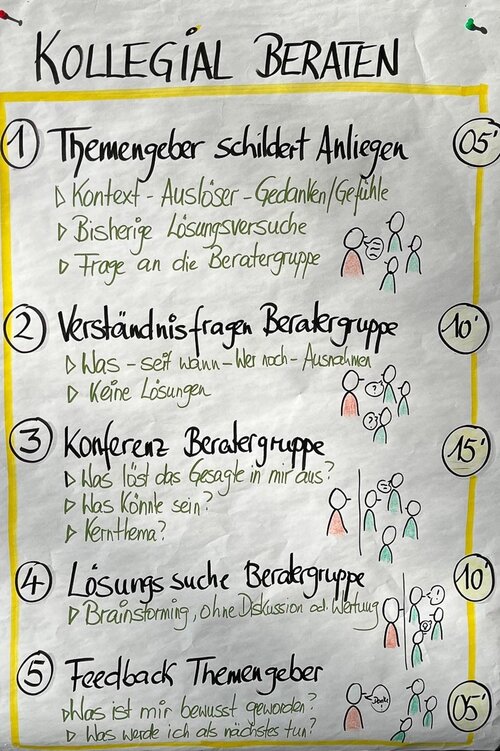 KOLLEGIAL BERATEN
1 Themengeber schildert Anliegen 05'
▷ Kontext - Auslöser - Gedanken/Gefühle
▷ Bisherige Lösungsversuche
▷ Frage an die Beratergruppe
2 Verständnisfragen Beratergruppe 10'
▷ Was - seit wann - Wer noch - Ausnahmen
▷ Keine Lösungen
? 
??
3 Konferenz Beratergruppe 15'
▷ Was löst das Gesagte in mir aus?
▷ Was könnte sein?
▷ Kernthema?
4 Lösungssuche Beratergruppe 10'
▷ Brainstorming, ohne Diskussion od. Wertung
!
5 Feedback Themengeber 05'
▷ Was ist mir bewusst geworden?
▷ Was werde ich als nächstes tun?
Danke